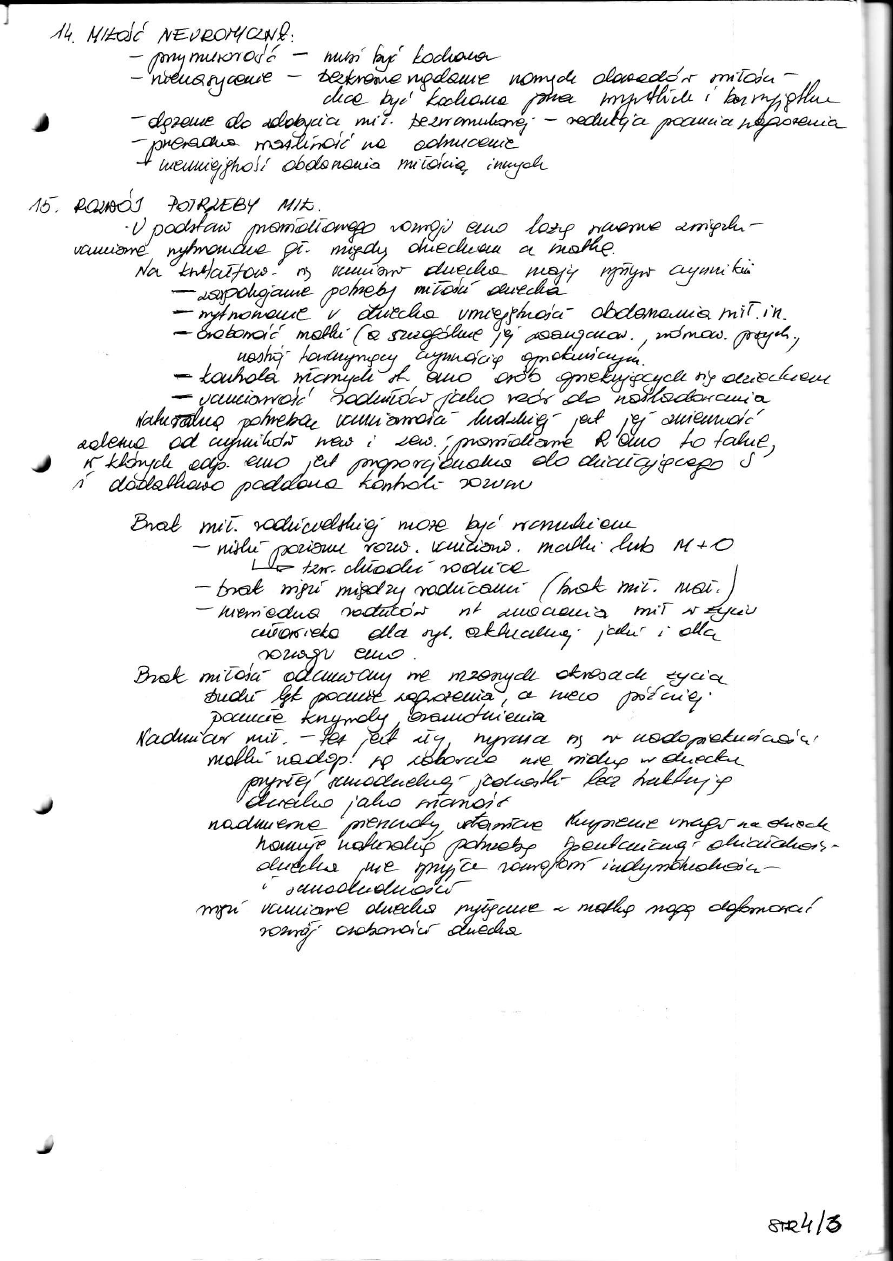 14. MIŁOŚĆ NEUROTYCZNA:
– przymusowość – musi być kochana
– nienasycenie – bezkresne żądanie nowych dowodów miłości –
chce być kochana przez wszystkich i bez wyjątku
– dążenie do zdobycia mił. bezwarunkowej – redukcja poczucia zagrożenia
– przesadna wrażliwość na odrzucenie
+ nieumiejętność obdarzania miłością innych
15. ROZWÓJ POTRZEBY MIŁ.
U podstaw prawidłowego rozwoju emo leżą wczesne związki
uczuciowe wytworzone gł. między dzieckiem a matką.
Na kształtow. się uczuciow. dziecka mają wpływ czynniki
– zaspokojanie potrzeby miłości dziecka
– wytworzenie u dziecka umiejętności obdarzania mił. in.
– osobowość matki (a szczególnie jej zaangażow., równow. psych.,
nastrój towarzyszący czynnością opiekuńczym.
– kontrola własnych st. emo osób opiekujących się dzieckiem
– uczuciowość rodziców jako wzór do naśladowania
Naturalną potrzebą uczuciowości ludzkiej jest jej zmienność
zależna od czynników wew i zew.; prawidłowe R emo to takie,
w których odp. emo jest proporcjonalna do działającego S
i dodatkowo poddana kontroli rozumu
Brak mił. rodzicielskiej może być warunkiem
– niski poziom rozw. uczuciow. matki lub M+O
tzw. chłodni rodzice
– brak więzi między rodzicami (brak mił. małż.)
– niewiedza rodziców nt znaczenia mił w życiu
człowieka dla syt. aktualnej jak i dla
rozwoju emo.
Brak miłości odczuwany we wczesnych okresach życia
budzi lęk poczucie zagrożenia, a nieco później
poczucie krzywdy, osamotnienia
Nadmiar mił. – też jest zły, wyraża się w nadopiekuńczości
matki nadop. są zaborcze nie widzą w dziecku
przyszłej samodzielnej jednostki lecz traktują
dziecko jako własność
nadmierne pieszczoty, ustawiczne skupienie uwagi na dziecku
hamuje naturalną potrzebę spontanicznej działalności
dziecka nie sprzyja rozwojowi indywidualności
i samodzielności
więzi uczuciowe dziecka wyłącznie z matką mogą deformować
rozwój osobowości dziecka
STR 4/3